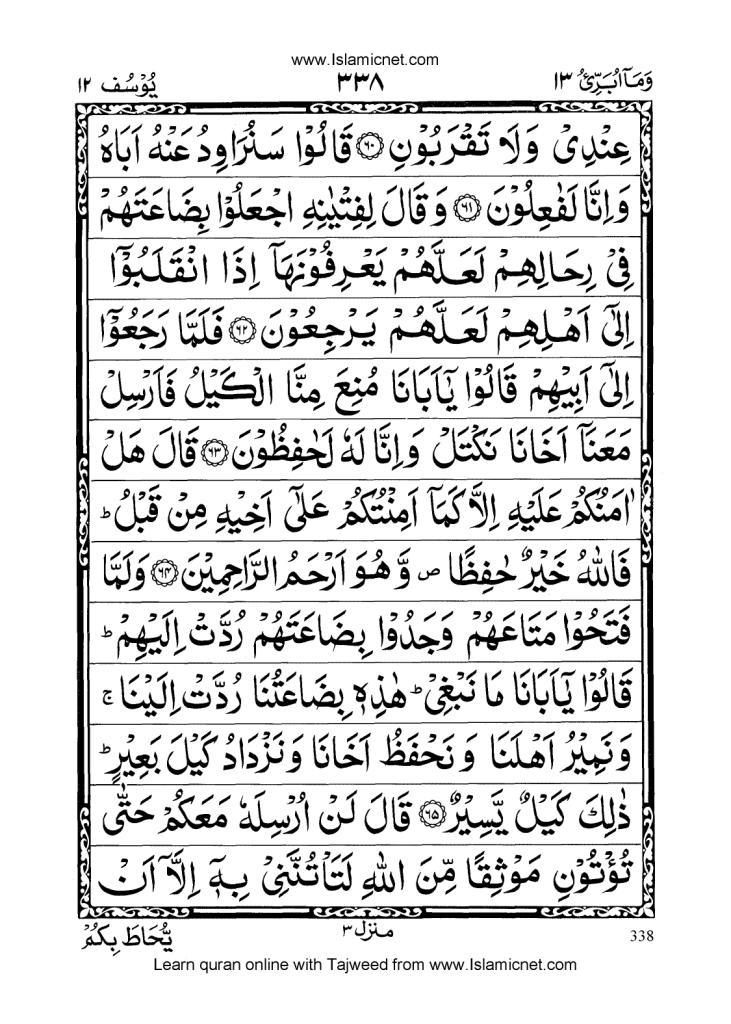 www.Islamicnet.com
وَمَاۤ اُبَرِّئُ ١٣ ٣٣٨ يُوْسُف ١٢
عِنْدِىْ وَلَا تَقْرَبُوْنِ ﴿٦٠﴾ قَالُوْا سَنُرَاوِدُ عَنْهُ اَبَاهُ
وَاِنَّا لَفٰعِلُوْنَ ﴿٦١﴾ وَقَالَ لِفِتْيٰنِهِ اجْعَلُوْا بِضَاعَتَهُمْ
فِىْ رِحَالِهِمْ لَعَلَّهُمْ يَعْرِفُوْنَهَاۤ اِذَا انْقَلَبُوْۤا
اِلٰٓى اَهْلِهِمْ لَعَلَّهُمْ يَرْجِعُوْنَ ﴿٦٢﴾ فَلَمَّا رَجَعُوْۤا
اِلٰٓى اَبِيْهِمْ قَالُوْا يٰۤاَبَانَا مُنِعَ مِنَّا الْكَيْلُ فَاَرْسِلْ
مَعَنَاۤ اَخَانَا نَكْتَلْ وَاِنَّا لَهٗ لَحٰفِظُوْنَ ﴿٦٣﴾ قَالَ هَلْ
اٰمَنُكُمْ عَلَيْهِ اِلَّا كَمَاۤ اَمِنْتُكُمْ عَلٰٓى اَخِيْهِ مِنْ قَبْلُ ؕ
فَاللّٰهُ خَيْرٌ حٰفِظًا ص وَّهُوَ اَرْحَمُ الرّٰحِمِيْنَ ﴿٦٤﴾ وَلَمَّا
فَتَحُوْا مَتَاعَهُمْ وَجَدُوْا بِضَاعَتَهُمْ رُدَّتْ اِلَيْهِمْ ؕ
قَالُوْا يٰۤاَبَانَا مَا نَبْغِىْ ؕ هٰذِهٖ بِضَاعَتُنَا رُدَّتْ اِلَيْنَا ۚ
وَنَمِيْرُ اَهْلَنَا وَنَحْفَظُ اَخَانَا وَنَزْدَادُ كَيْلَ بَعِيْرٍ ؕ
ذٰلِكَ كَيْلٌ يَّسِيْرٌ ﴿٦٥﴾ قَالَ لَنْ اُرْسِلَهٗ مَعَكُمْ حَتّٰى
تُؤْتُوْنِ مَوْثِقًا مِّنَ اللّٰهِ لَتَاْتُنَّنِىْ بِهٖۤ اِلَّاۤ اَنْ
يُّحَاطَ بِكُمْ منزل ٣ 338
Learn quran online with Tajweed from www.Islamicnet.com